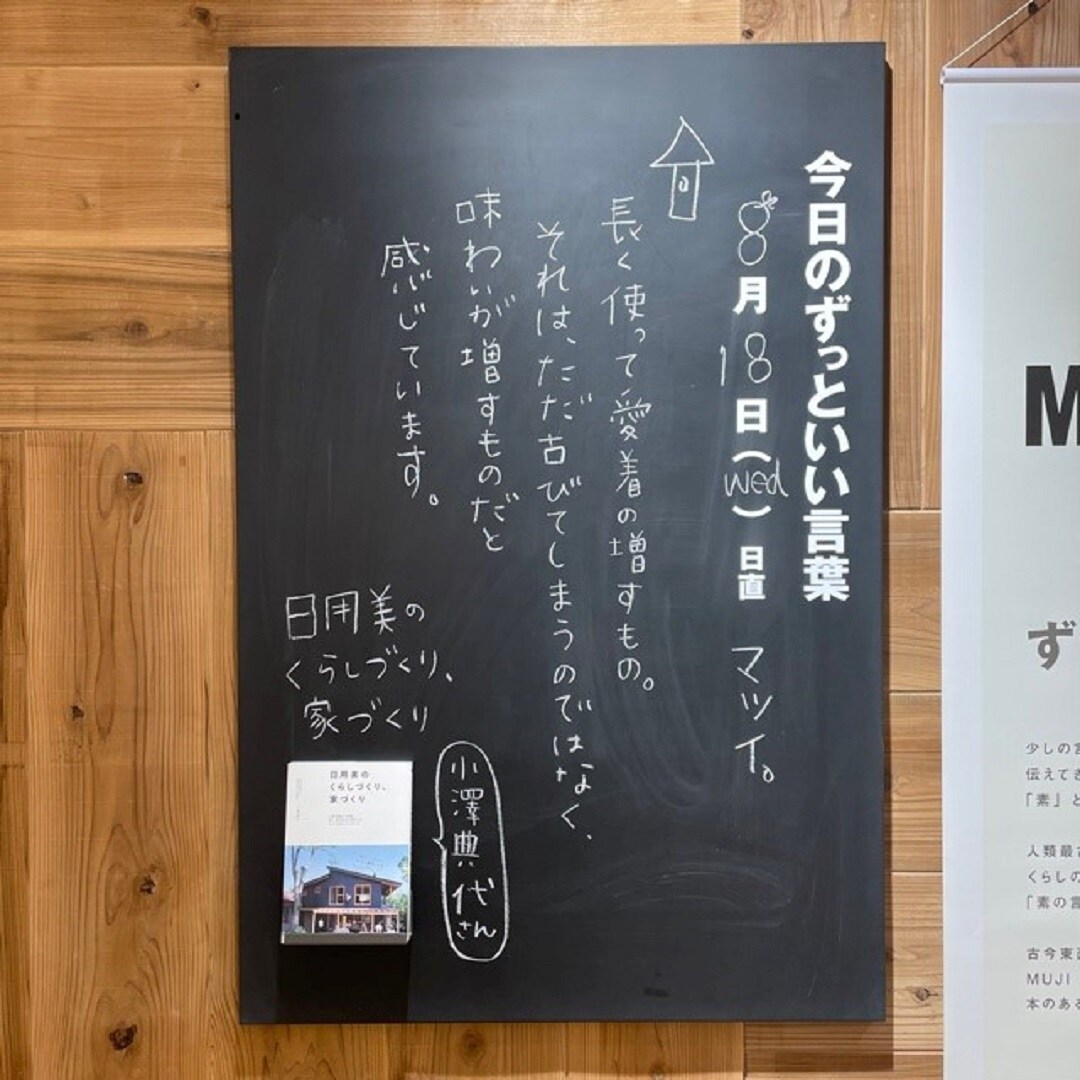 今日のずっといい言葉
8月18日(wed) 日直 マツイ。
長く使って愛着の増すもの。
それは、ただ古びてしまうのではなく、
味わいが増すものだと
感じています。
日用美の
くらしづくり、
家づくり
小澤典代さん
日用美の
くらしづくり、
家づくり
M
ず
少しの言
伝えてき
「素」と
人類最古
くらしの
「素の言
古今東西
MUJI
本のある